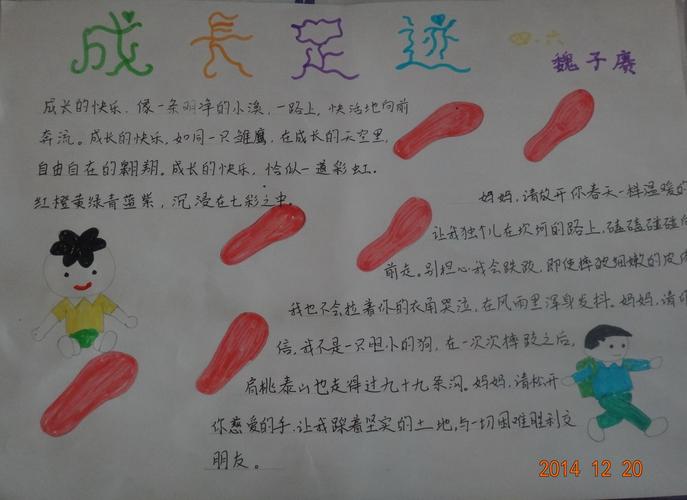 成长足迹
四.六
魏子赓
成长的快乐，像一条明净的小溪，一路上，快活地向前
奔流。成长的快乐，如同一只雏鹰，在成长的天空里，
自由自在的翱翔。成长的快乐，恰似一道彩虹.
红橙黄绿青蓝紫，沉浸在七彩之中.
妈妈，请放开你春天一样温暖的
让我独个儿在坎坷的路上，磕磕碰碰向
前走。别担心我会跌跤，即使摔破细嫩的皮
我也不会拉着你的衣角哭泣，在风雨里浑身发抖。妈妈，请你
信，我不是一只胆小的狗，在一次次摔跤之后，
肩挑泰山也走得过九十九条沟。妈妈，请松开
你慈爱的手，让我踩着坚实的土地，与一切困难胜利交
朋友。
2014 12 20